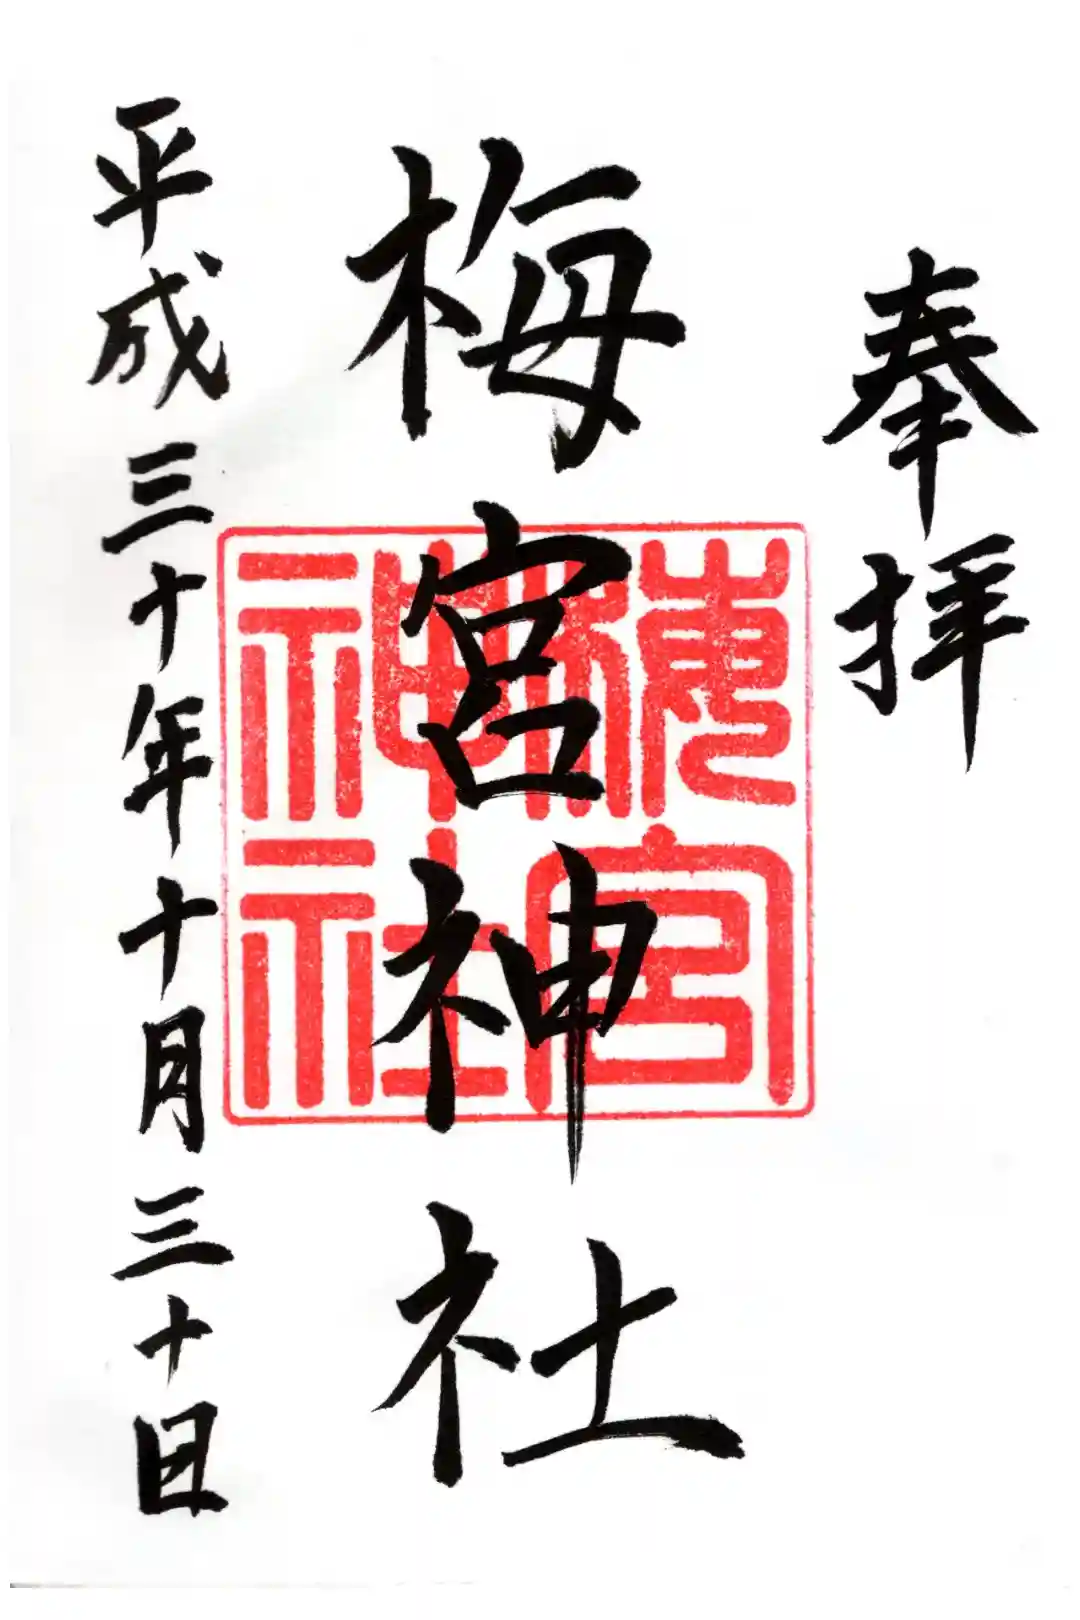 奉拝
梅宮神社
梅宮
神社
平成三十年十月三十日